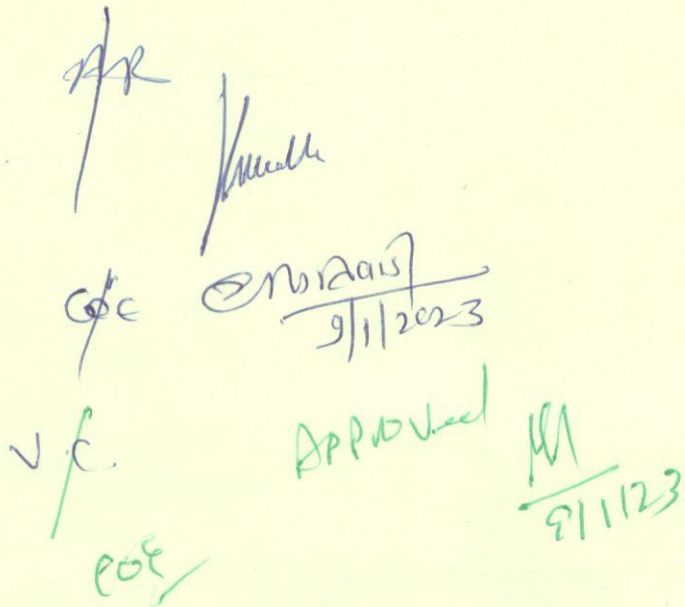 AR
COE
9/1/2023
V.C.
Approved
9/1/23
COE